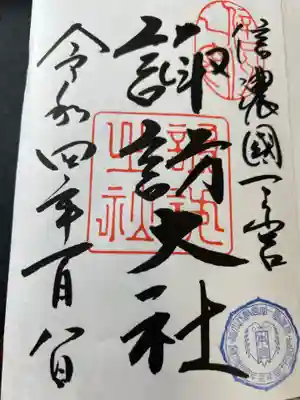 信濃國一之宮
諏訪大社
令和四年一月八日